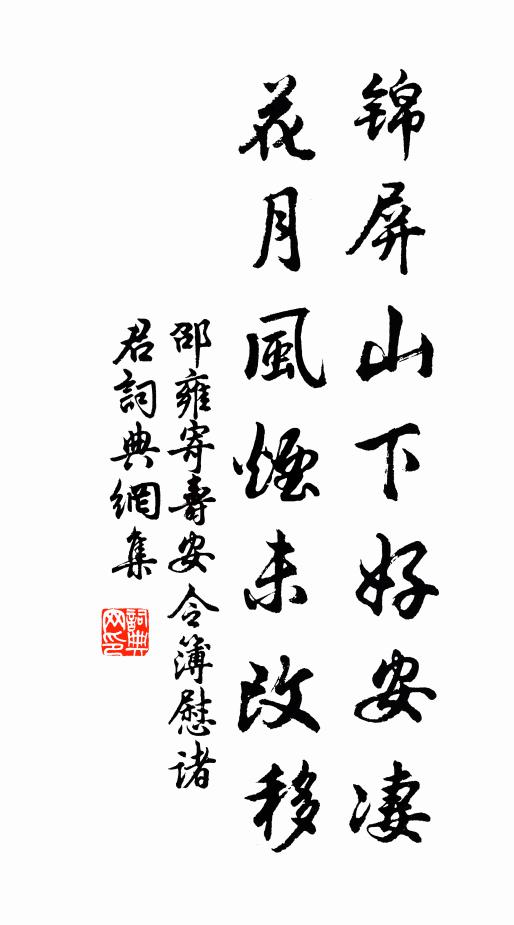 锦屏山下好安凄
花月風煙未改移
邵雍寄壽安令簿慰诸
君詞典網集
詞典
网印